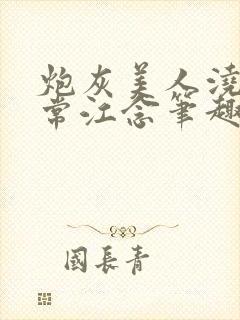 炮灰美人浇
常江念笔趣
國長青